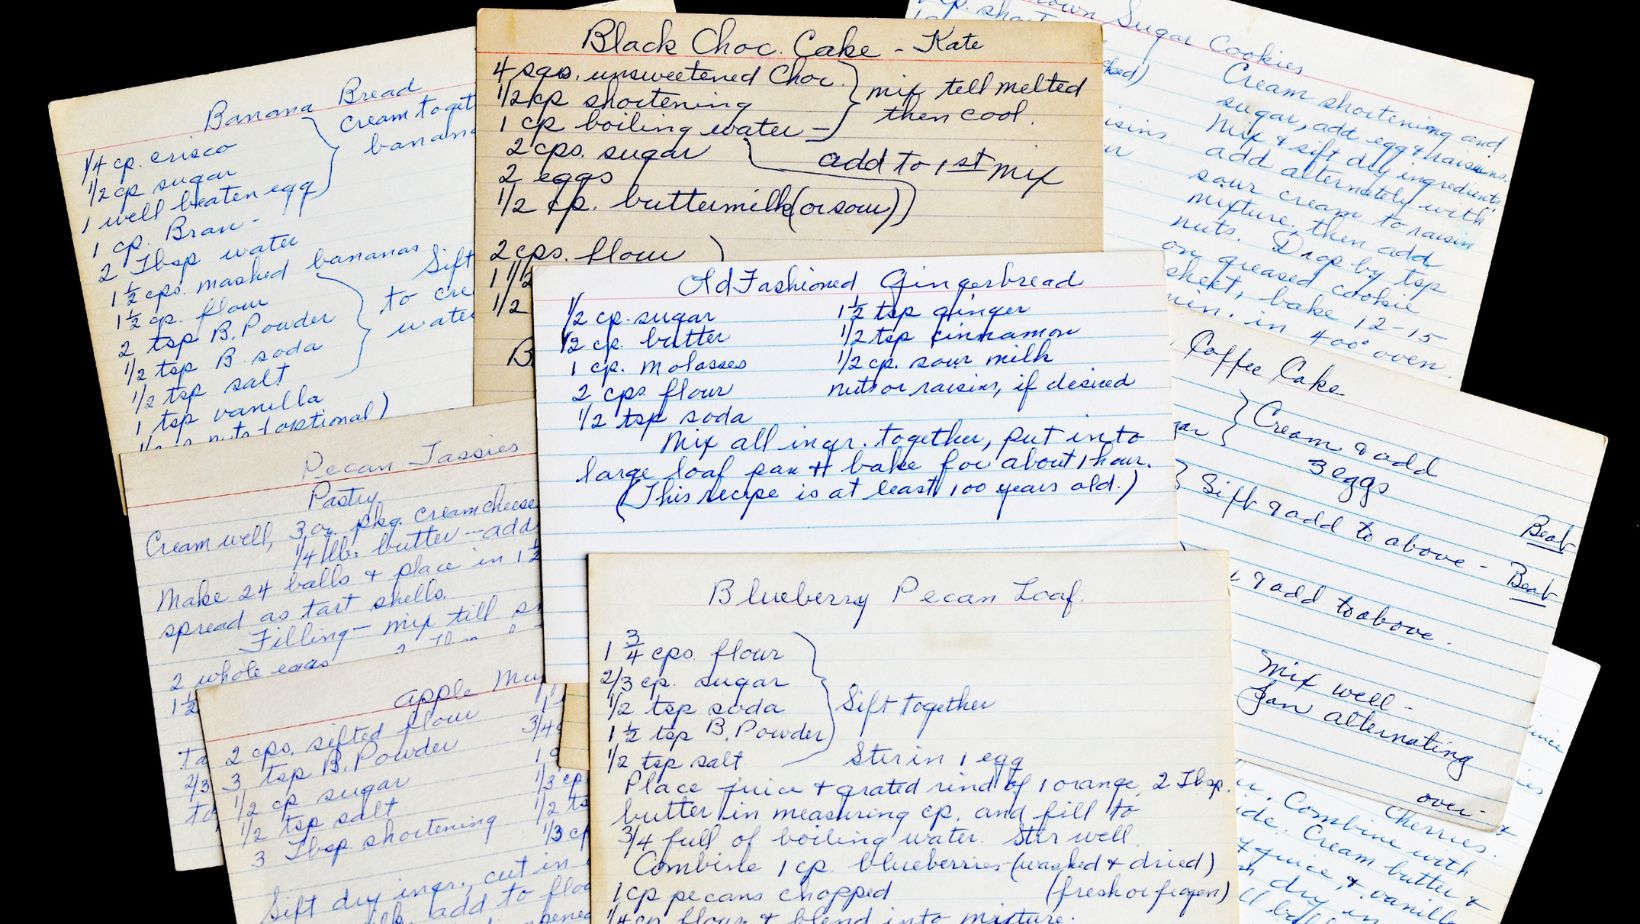 Banana Bread
1/4 cp. crisco
1/2 cp sugar
1 well beaten egg
cream toget
banana
1 cp. Bran
2 Tbsp water
1 1/2 cps. mashed bananas
1 1/2 cp. flour
2 tsp B. Powder
1/2 tsp B. soda
1/2 tsp salt
1 tsp vanilla
nuts (optional)
Sift
to cre
water
Black Choc. Cake - Kate
4 sqs. unsweetened Choc.
1/2 cp shortening
1 cp boiling water -
mix tell melted
then cool.
2 cps. sugar
2 eggs
1/2 cp. buttermilk (or sour)
add to 1st mix
2 cps. flour
1 1/2
1/2
B
Brown Sugar Cookies
Cream shortening and
sugar, add egg & raisins.
Mix & sift dry ingredients
add alternately with
sour cream to raisin
mixture, then add
nuts. Drop by tsp
on greased cookie
sheet, bake 12-15
min. in 400° oven.
Old Fashioned Gingerbread
1/2 cp. sugar
1/2 cp. butter
1 cp. molasses
2 cps flour
1/2 tsp soda
1 1/2 tsp ginger
1/2 tsp cinnamon
1/2 cp. sour milk
nuts or raisins, if desired
Mix all ingr. together, put into
large loaf pan & bake for about 1 hour.
(This recipe is at least 100 years old.)
Coffee Cake
Cream & add
3 eggs
Sift & add to above - Beat
Beat
& add to above.
Mix well -
alternating
over -
Pecan Tassies
Pastry
Cream well, 3 oz pkg. cream cheese
1/4 lb. butter -- add
Make 24 balls & place in 1
spread as tart shells.
Filling - mix till s
2 whole eggs
Apple Mu
2 cps. sifted flour
3 tsp B. Powder
1/2 cp sugar
1/2 tsp salt
3 Tbsp shortening
3/4
1/3 cp
1/2 ts
1/3 cp
Sift dry ingr., cut in
add to flo
Blueberry Pecan Loaf.
1 3/4 cps. flour
2/3 cp. sugar
1/2 tsp soda
1 1/2 tsp B. Powder
1/2 tsp salt
Sift together
Stir in 1 egg
Place juice & grated rind of 1 orange, 2 Tbsp.
butter in measuring cp. and fill to
3/4 full of boiling water. Stir well
Combine 1 cp. blueberries - (washed & dried)
1 cp pecans chopped (fresh or frozen)
1/4 cp flour & blend into mixture.
Cherries.
Combine with
Cream butter &
juice, & vanilla
dry in